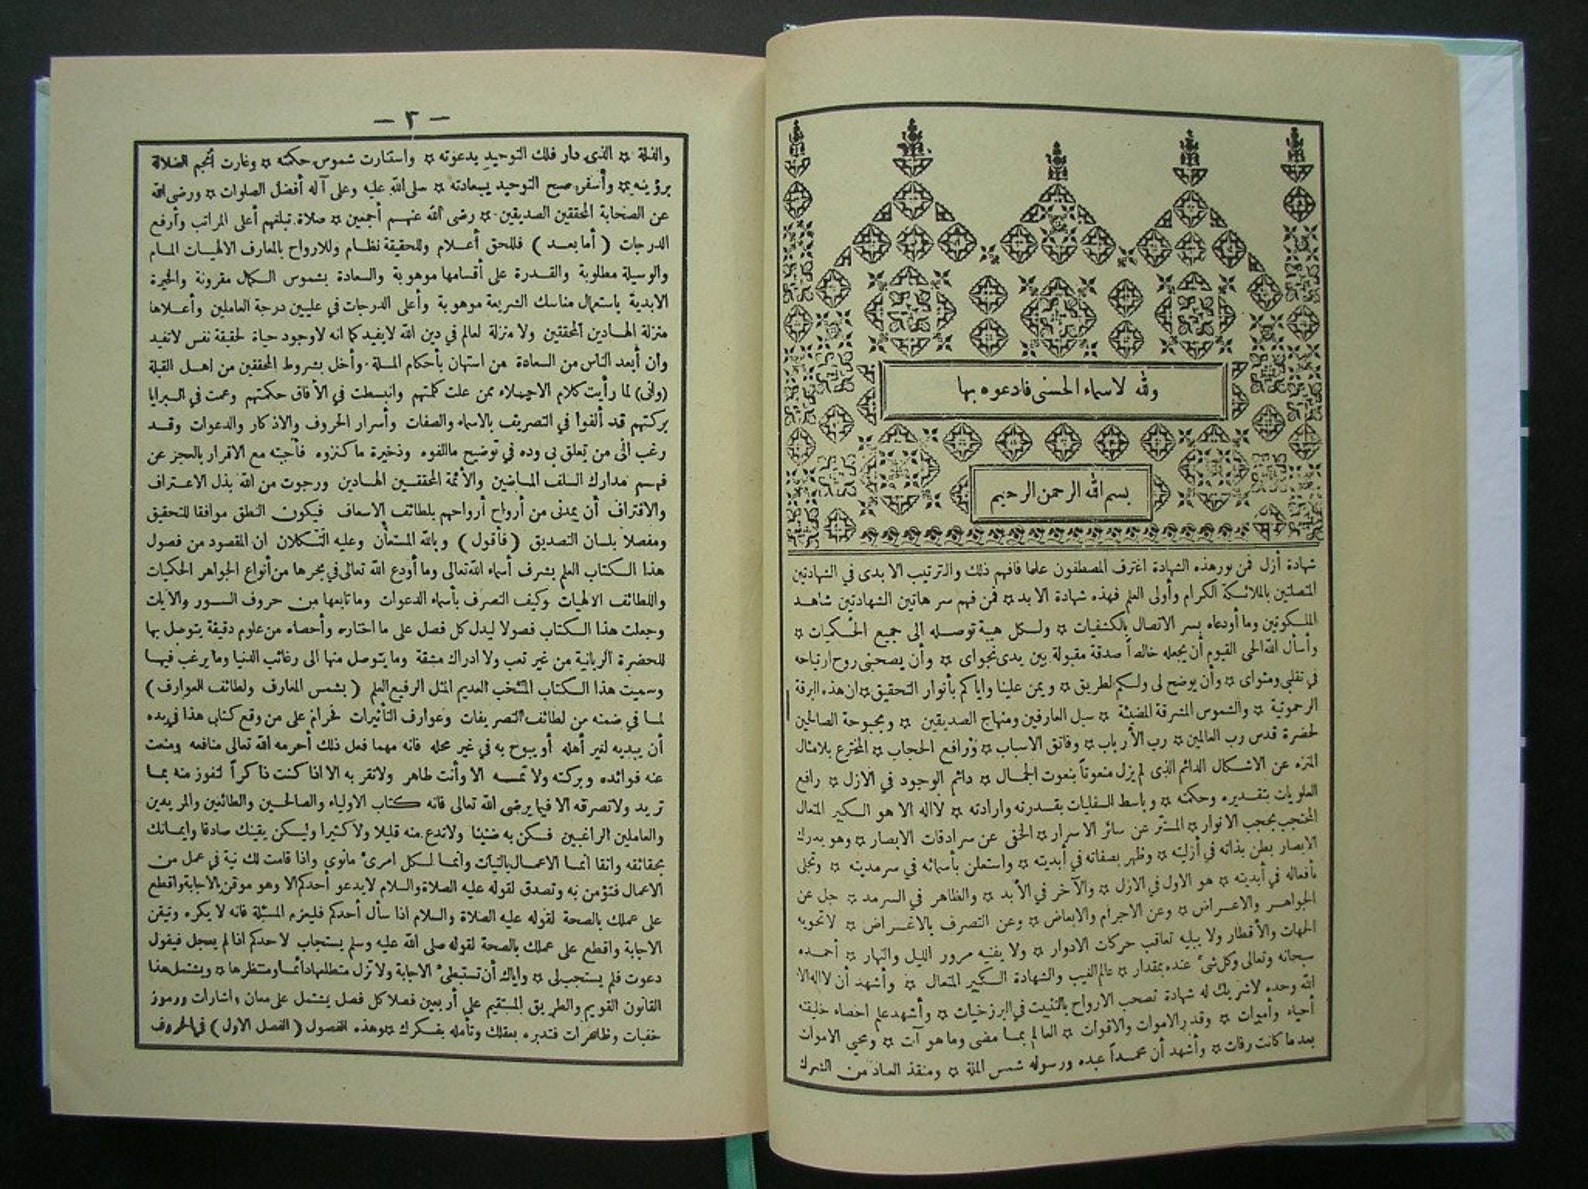 ولله لاسماء الحسنى فادعوه بها
بسم الله الرحمن الرحيم
شهادة أزل فمن نور هذه الشهادة اغترف المصطفون علما فافهم ذلك والترتيب الابدى في الشهادتين
المتصلتين بالملائكة الكرام وأولى العلم فهذه شهادة الابد ¤ فمن فهم سر هاتين الشهادتين شاهد
الملكوتين وما أودعاه بسر الاتصال بالكشفيات ¤ ولكل هيبة توصله الى جميع الحكميات ¤
وأسأل الله الحى القيوم أن يجعله خالصاً صدقة مقبولة بين يدى نجواى ¤ وأن يصحبنى روح ارتياحه
في تقلبى ومثواى ¤ وأن يوضح لى ولكم لطريق ¤ ويمن علينا واياكم بأنوار التحقيق ¤ ان هذه الرقة
الرحموتية ¤ والشموس المشرقة المضيئة ¤ سبل العارفين ومنهاج الصديقين ¤ وبحبوحة الصالحين
لحضرة قدس رب العالمين ¤ رب الأرباب ¤ وفاتق الاسباب ¤ ورافع الحجاب ¤ المخترع بلامثال
المنزه عن الاشكال الدائم الذى لم يزل منعوتاً بنعوت الجمال ¤ دائم الوجود في الازل ¤ رافع
العلويات بتقديره وحكمته ¤ وباسط السفليات بقدرته وارادته ¤ لااله الا هو الكبير المتعال
المحتجب بحجب الانوار ¤ المستتر عن سائر الاسرار ¤ الخفى عن سرادقات الابصار ¤ وهو يدرك
الابصار بطن بذاته في أزليته ¤ وظهر بصفاته في أبديته ¤ واستعلن بأسمائه في سرمديته ¤ وتجلى
بأفعاله في أبديته ¤ هو الاول في الازل ¤ والآخر في الأبد ¤ والظاهر في السرمد ¤ جل عن
الجواهر والاعراض ¤ وعن الاجرام والابعاض ¤ وعن التصرف بالاغراض ¤ لاتحويه
الجهات والأقطار ولا يبليه تعاقب حركات الادوار ¤ ولا يفنيه مرور الليل والنهار ¤ أحمده
سبحانه وتعالى وكل شئ عنده بمقدار ¤ عالم الغيب والشهادة الكبير المتعال ¤ وأشهد أن لااله الا
الله وحده لاشريك له شهادة تصحب الارواح بالتثبيت في البرزخيات ¤ وأشهد علم احصاء خليقته
أحياء وأموات ¤ وقدر الاموات والاقوات ¤ العالم بما مضى وما هو آت ¤ ومحيى الاموات
بعد ما كانت رفات ¤ وأشهد أن محمداً عبده ورسوله شمس الملة ¤ ومنقذ العباد من الشرك
— ٣ —
والغلة ¤ الذى دار فلك التوحيد بدعوته ¤ واستنارت شموس حكمته ¤ وغارت أنجم الضلالة
برؤيته ¤ وأسفر صبح التوحيد بسعادته ¤ صلى الله عليه وعلى آله أفضل الصلوات ¤ ورضى الله
عن الصحابة المحققين الصديقين ¤ رضى الله عنهم أجمعين ¤ صلاة تبلغهم أعلى المراتب وأرفع
الدرجات ( أما بعد ) فللحق أعلام وللحقيقة نظام وللارواح بالمعارف الالهيات المام
والوسيلة مطلوبة والقدرة على أقسامها موهوبة والسعادة بشموس الكمال مقرونة والحيرة
الابدية باستعمال مناسك الشريعة موهوبة وأعلى الدرجات في عليين درجة العاملين وأعلاها
منزلة الهادين المحققين ولا منزلة لعالم في دين الله لايفيد كما انه لاوجود حياة لحقيقة نفس لاتفيد
وان أبعد الناس من السعادة من استهان بأحكام الملة وأخل بشروط المحققين من اهل القبلة
(وانى) لما رأيت كلام الاجلاء ممن علت كلمتهم وانبسطت في الآفاق حكمتهم وعمت في البرايا
بركتهم قد ألفوا في التصريف بالاسماء والصفات وأسرار الحروف والاذكار والدعوات وقد
رغب الى من تعلق بى وده في توضيح ماألفوه وذخيرة ما كنزوه فأجبته مع الاقرار بالعجز عن
فهم مدارك السلف الماضين والأئمة المحققين الهادين ورجوت من الله بذل الاعتراف
والاقتراف أن يمدنى من أرواح أرواحهم بلطائف الاسعاف فيكون النطق موافقا للتحقيق
ومفصلا بلسان التصديق (فأقول) وبالله المستعان وعليه التكلان ان المقصود من فصول
هذا الكتاب العلم بشرف أسماء الله تعالى وما أودع الله تعالى في بحرها من أنواع الجواهر الحكميات
واللطائف الالهيات وكيف التصرف بأسماء الدعوات وماتابعها من حروف السور والآيات
وجعلت هذا الكتاب فصولا ليدل كل فصل على ما اختاره وأحصاه من علوم دقيقة يتوصل بها
للحضرة الربانية من غير تعب ولا ادراك مشقة وما يتوصل منها الى رغائب الدنيا وما يرغب فيها
وسميت هذا الكتاب المنتخب العديم المثل الرفيع العلم (بشمس المعارف ولطائف العوارف)
لما في ضمنه من لطائف التصريفات وعوارف التأثيرات فحرام على من وقع كتابى هذا في يده
أن يبديه لغير أهله أو يبوح به في غير محله فانه مهما فعل ذلك أحرمه الله تعالى منافعه ومنعت
عنه فوائده وبركته ولا تمسه الا وأنت طاهر ولاتقربه الا اذا كنت ذاكراً لتفوز منه بما
تريد ولاتصرفه الا فيما يرضى الله تعالى فانه كتاب الاولياء والصالحين والطائعين والمريدين
والعاملين الراغبين فكن به ضنينا ولاتدع منه قليلا ولاكثيرا وليكن يقينك صادقا وايمانك
بحقائقه واثقا انما الاعمال بالنيات وانما لكل امرئ مانوى واذا قامت لك نية في عمل من
الاعمال فتؤمن به وتصدق لقوله عليه الصلاة والسلام لايدعو أحدكم الا وهو موقن بالاجابة واقطع
على عملك بالصحة لقوله عليه الصلاة والسلام اذا سأل أحدكم فليعزم المسئلة فانه لا يكره وتيقن
الاجابة واقطع على عملك بالصحة لقوله صلى الله عليه وسلم يستجاب لاحدكم اذا لم يعجل فيقول
دعوت فلم يستجب لى ¤ واياك أن تستبطئ الاجابة ولا تزل متطلعها دائما ومنتظرها ¤ ويشتمل هذا
القانون القويم والطريق المستقيم على أربعين فصلا كل فصل يشتمل على معان واشارات ورموز
خفيات وظاهرات فتدبره بعقلك وتأمله بفكرك ¤ وهذه الفصول ( الفصل الاول ) في الحروف